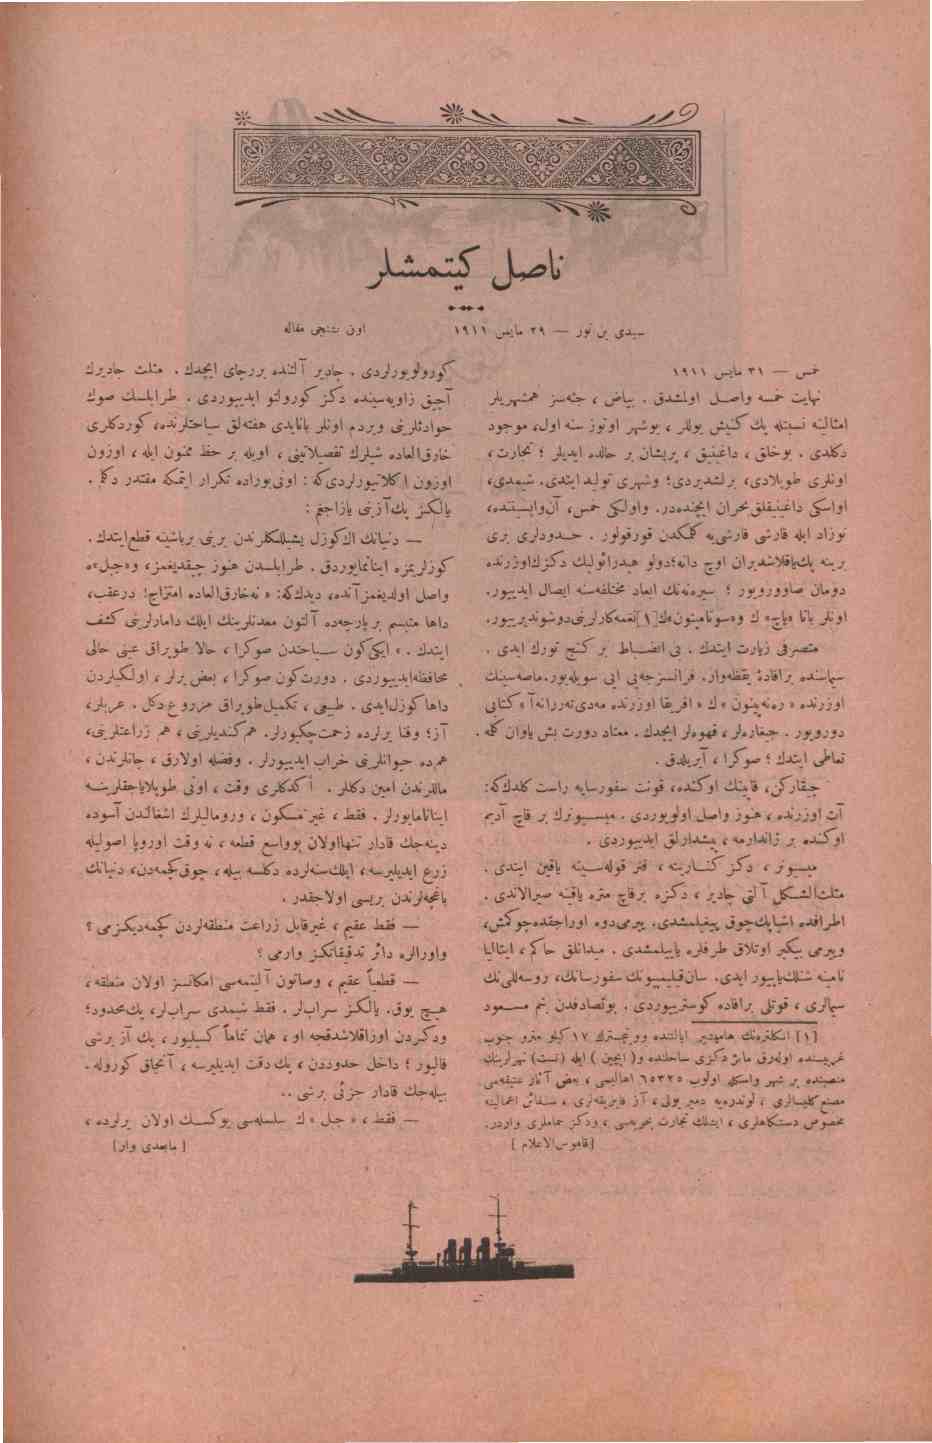 ناصل كيتمشلر
سيدى بن نور — ٢٩ مايس ١٩١١
اون بشنجى مقاله
خمس — ٣١ مايس ١٩١١
نهايت خمسه واصل اولمشدق . بياض ، جثه‌سز همشهريلر
امثالينه نسبتله پك كنيش يوللر ، بوشهر اوتوز سنه اول، موجود
دكلدى . بوخلق ، داغينيق ، پريشان بر حالده ايديلر ؛ تجارت ،
اونلرى طوپلادى، برلشديردى؛ وشهرى توليد ايتدى. شيمدى،
اواسكى داغينيقلق بحران ايچنده‌در. واولكى خمس، آن‌واپسنده،
نوزاد ايله قارشى قارشى‌يه كلمكدن قورقولور . حدودلرى برى
برينه پك‌ياقلاشديران اوچ دانه؛دولو هيدرائوليك دكزك‌اوزرنده
دومان صاووروبور ؛ سيره‌نه‌نك ابعاد مختلفه‌سنه ايصال ايدييور.
اونلر بانا «پاچ» ك و«سوتامپتون»ك[١]نغمه‌كارلرينى‌دوشونديرييور.
متصرفى زيارت ايتدك . بى انضباط بر كنج تورك ايدى .
سيماسنده بر افادهٔ يقظه‌وار. فرانسزجه‌يى ايى سويله‌يور.ماصه‌سينك
اوزرنده « ره‌نه‌پينون » ك « افريقا اوزرنده مه‌دى‌ته‌ررانه‌آ » كتابى
دورويور . جيغاره‌لر ، قهوه‌لر ايچدك . معتاد دورت بش ياوان كله
تعاطى ايتدك ؛ صوكرا ، آيريلدق .
چيقاركن، قاپينك اوكنده، قونت سفورسايه راست كلدك‌كه:
آت اوزرنده ، هنوز واصل اولويوردى . ميسيونرك بر قاچ آديم
اوكنده بر ژاندارمه ، پيشدارلق ايدييوردى .
ميسيونر ، دكز كنارينه ، فنر قوله‌سينه ياقين ايندى .
مثلث‌الشكل آلتى چادير ، دكزه برقاچ متره ياقينه صيرالاندى .
اطرافده اشياپك‌چوق ييغيلمشدى. ييرمى‌دوه اوراجقده‌چوكمش،
وييرمى بيكير اوتلاق طرفلره ياييلمشدى . ميدانلق حاكم ، ايتاليا
نامينه شنلك‌ياپيور ايدى. سان‌فيليپونك سفورسانك، روسه‌للى‌نك
سيمالرى ، قوتلى برافاده كوسترييوردى. بوتصادفدن بنم مسعود
[١] انكلتره‌نك هامپشير ايالتنده وونچسترك ١٧ كيلو مترو جنوب
غربيسنده اوله‌رق مانش دكزى ساحلنده و( ايچين ) ايله (تست) نهرلرينك
منصبنده بر شهر واسكله اولوب ٦٥٣٢٥ اهاليسى ، بعض آثار عتيقه‌سى
مصنع كليسالرى ، لوندره‌يه دمير يولى ، آز فابريقه‌لرى ، سفائن اعمالينه
مخصوص دستكاهلرى ، ايشلك تجارت بحريه‌سى ، ودكز حماملرى واردر.
[قاموس‌الاعلام ]
كورولويورلردى . چادير آلتنده بررچاى ايچدك . مثلث چاديرك
آچيق زاويه‌سينده دكز كورولتو ايدييوردى . طرابلسك صوك
حوادثلرينى ويردم اونلر بانايدى هفته‌لق سياحتلرنده، كوردكلرى
خارق‌العاده شيلرك تفصيلاتينى ، اويله بر حظ ممنون ايله ، اوزون
اوزون ا كلاتيورلردى‌كه : اونى‌بوراده تكرار ايتمكه مقتدر دكلم .
يالكز پك‌آزينى يازاجغم :
— دنيانك اك‌كوزل يشيللكلرندن برينى برباشينه قطع‌ايتدك.
كوزلريمزه اينانمايوردق . طرابلسدن هنوز چيقديغمز، و«جبل»ه
واصل اولديغمزآنده، ديدك‌كه: « نه‌خارق‌العاده امتزاج! درعقب،
داها متبسم برپارچه‌ده آلتون معدنلرينك ايلك دامارلرينى كشف
ايتدك . » ايكى‌كون سياحتدن صوكرا ، حالا طوپراق عينى حالى
محافظه‌ايدييوردى . دورت‌كون صوكرا ، بعض يرلر ، اولكيلردن
داها كوزل‌ايدى . طبيعى ، تكميل‌طوپراق مزروع دكل . عربلر،
آز؛ وفنا يرلرده زحمت‌چكيورلر. هم كنديلرينى ، هم زراعتلرينى،
هم‌ده حيوانلرينى خراب ايدييورلر . وفضله اولارق ، جانلرندن ،
ماللرندن امين دكللر . ا كدكلرى وقت ، اونى طوپلاياجقلرينه
اينانامايورلر. فقط ، غير مسكون ، ورومالىلرك اشغالندن آسوده
دينه‌جك قادار تنهااولان بوواسع قطعه ، نه وقت اوروپا اصوليله
زرع ايديليرسه، ايلك‌سنه‌لرده دكلسه بيله، چوق‌كچمه‌دن، دنيانك
باغچه‌لرندن بريسى اولاجقدر .
— فقط عقيم ، غيرقابل زراعت منطقه‌لردن كچمه‌ديكزمى ؟
واورالره دائر تدقيقاتكز وارمى ؟
— قطعياً عقيم ، وصاتون آلينمه‌سى امكانسز اولان منطقه ،
هيچ يوق. يالكز سرابلر. فقط شيمدى سرابلر، پك‌محدود؛
ودكزدن اوزاقلاشدقجه او ، همان تماماً كسيليور ، پك آز برشى
قاليور ؛ داخل حدوددن ، پك‌دقت ايديليرسه ، آنجاق كوروله
بيله‌جك قادار جزئى برشى ..
— فقط ، « جبل » ك سلسله‌سى يوكسك اولان يرلرده ،
[ مابعدى وار]